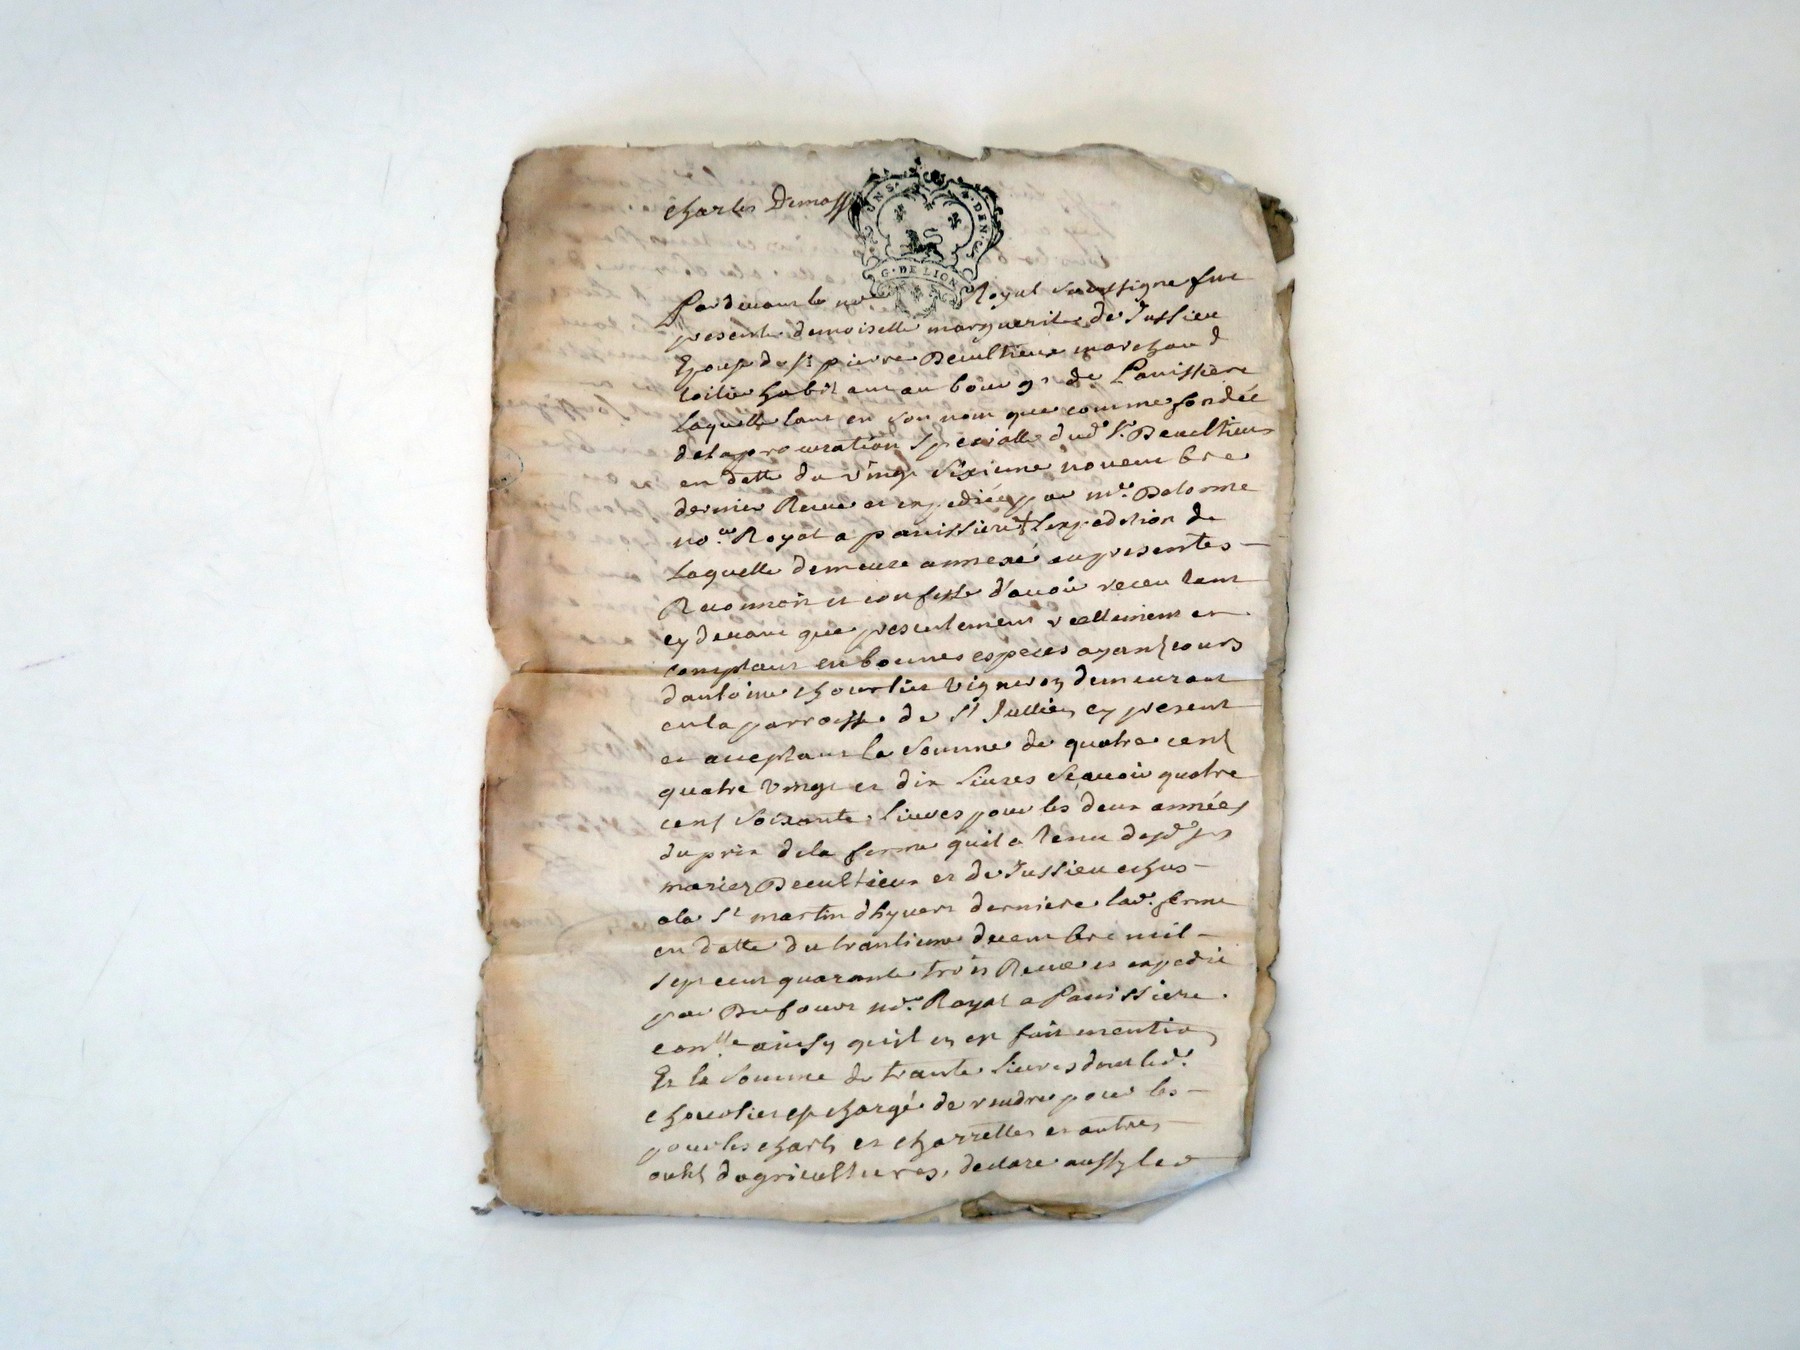 charles Demass
UN S. DEN.
G. DE LION
Pardevant le no.re Royal soussigne fut
presente demoiselle marguerite de Jussieu
Epouse du sr. pierre Decultieux marchand
toilier habitant au bourg de Panissiere
Laquelle tant en son nom que comme fondée
de la procuration specialle dud. Sr. Decultieux
en datte du vingt sixieme novembre
dernier Receue et expediée par me. Delorme
no.re Royal a panissiere Lexpedition de
Laquelle demeure annexé au presentes
Reconnoit et confesse d'avoir receu tant
cy devant que presentement reellement et
comptant en bonnes especes ayant cours
dantoine chourlier vigneron demeurant
en la parroisse de St Jullien cy present
et acceptant la somme de quatre cent
quatre vingt et dix livres scavoir quatre
cent soixante livres pour les deux années
du prix de la ferme quil a tenu desd.
mariez Decultieux et de Jussieu echus
a la St martin dhyvert derniere lad. ferme
en datte du trantieme decembre mil
sept cent quarante trois Receue et expedié
par Dufour no.re Royal a Panissiere
con.lle ainsy quil en est fait mention
Et la somme de trante livres dont led.
chourlier est chargé de rendre pour les
pour les charts et charrettes et autres
outils dagricultures, declare aussy lad